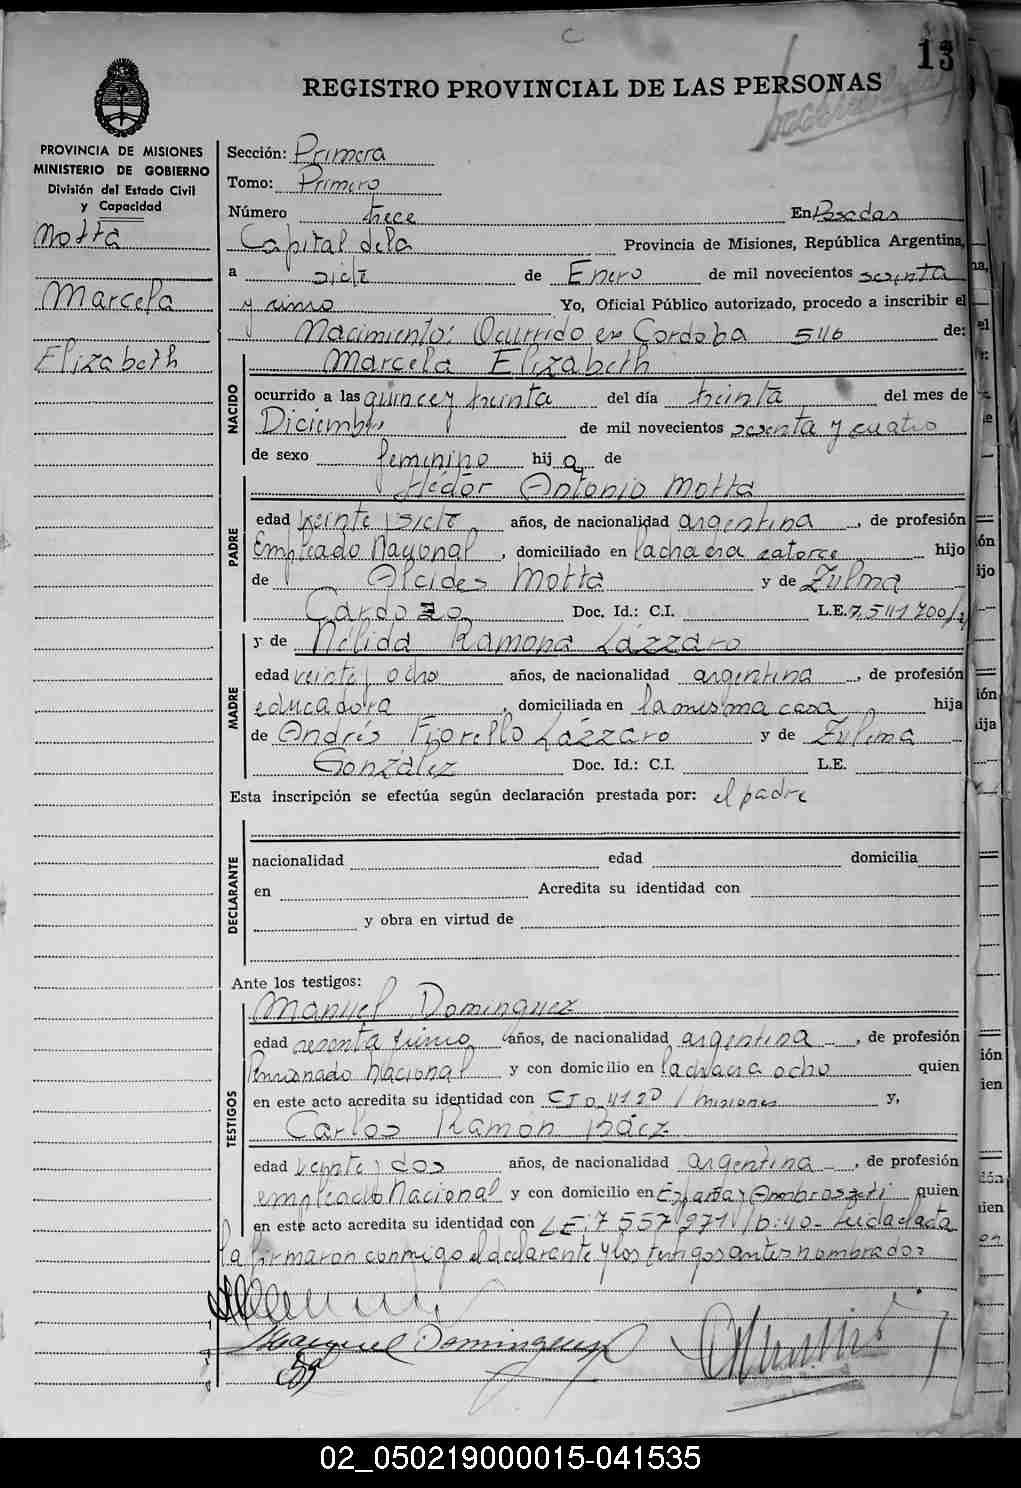 C
13
REGISTRO PROVINCIAL DE LAS PERSONAS
PROVINCIA DE MISIONES
MINISTERIO DE GOBIERNO
División del Estado Civil
y Capacidad
Motta
Marcela
Elizabeth
Sección: Primera
Tomo: Primero
Número trece En Posadas
Capital de la Provincia de Misiones, República Argentina,
a siete de Enero de mil novecientos sesenta
y cinco Yo, Oficial Público autorizado, procedo a inscribir el
Nacimiento: Ocurrido en Cordoba 546 de:
NACIDO
Marcela Elizabeth
ocurrido a las quince y treinta del día treinta del mes de
Diciembre de mil novecientos sesenta y cuatro
de sexo femenino hij a de
PADRE
Hector Antonio Motta
edad veinte y siete años, de nacionalidad argentina, de profesión
Empleado Nacional, domiciliado en la chacra catorce hijo
de Alcides Motta y de Zulma
Cardozo Doc. Id.: C.I. L.E. 7.541.700
MADRE
y de Nélida Ramona Lázzaro
edad veinte y ocho años, de nacionalidad argentina, de profesión
educadora, domiciliada en la misma casa hija
de Andrés Fiorello Lázzaro y de Zulema
González Doc. Id.: C.I. L.E.
Esta inscripción se efectúa según declaración prestada por: el padre
DECLARANTE
nacionalidad edad domicilia
en Acredita su identidad con
y obra en virtud de
Ante los testigos:
TESTIGOS
Manuel Dominguez
edad sesenta y cinco años, de nacionalidad argentina, de profesión
Pensionado Nacional y con domicilio en la chacra ocho quien
en este acto acredita su identidad con CI 0.4120 / misiones y,
Carlos Ramón Báez
edad veinte y dos años, de nacionalidad argentina, de profesión
empleado Nacional y con domicilio en España y Ambrosetti quien
en este acto acredita su identidad con LE: 7 557 271 / D: 40 - Leida el acta
la firmaron conmigo el declarante y los testigos antes nombrados
Manuel Dominguez
02_050219000015-041535